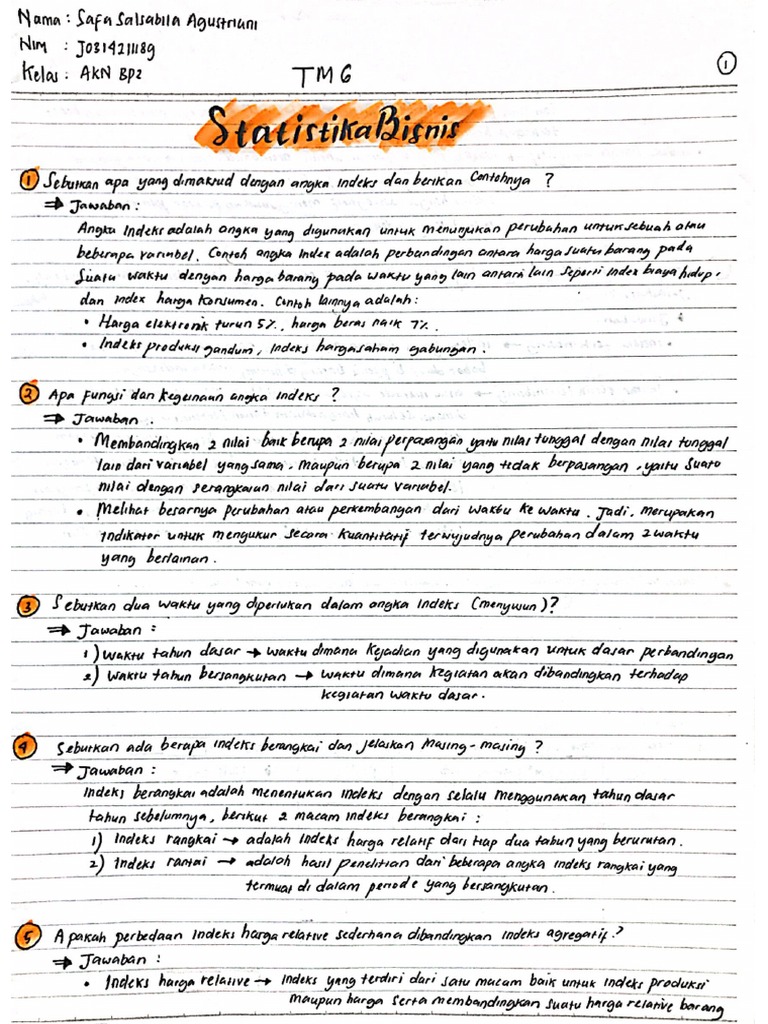 Nama : Safa Salsabila Agustriani
Nim : J0314211189
Kelas : AKN BP2
TM 6
1
Statistika Bisnis
1 Sebutkan apa yang dimaksud dengan angka indeks dan berikan Contohnya ?
⇒ Jawaban :
Angka Indeks adalah angka yang digunakan untuk menunjukan perubahan untuk sebuah atau
beberapa variabel. Contoh angka Index adalah perbandingan antara harga suatu barang pada
Suatu waktu dengan harga barang pada waktu yang lain antara lain seperti Index biaya hidup,
dan Index harga konsumen. Contoh lainnya adalah :
• Harga elektronik turun 5%, harga beras naik 7%.
• Indeks produksi gandum, Indeks harga saham gabungan.
2 Apa fungsi dan kegunaan angka Indeks ?
⇒ Jawaban .
• Membandingkan 2 nilai baik berupa 2 nilai perpasangan yaitu nilai tunggal dengan nilai tunggal
lain dari variabel yang sama, maupun berupa 2 nilai yang tidak berpasangan, yaitu Suatu
nilai dengan serangkaian nilai dari suatu variabel.
• Melihat besarnya perubahan atau perkembangan dari waktu ke waktu. Jadi, merupakan
indikator untuk mengukur secara kuantitatif terwujudnya perubahan dalam 2 waktu
yang berlainan.
3 Sebutkan dua waktu yang diperlukan dalam angka Indeks (menyusun)?
⇒ Jawaban :
1) Waktu tahun dasar → waktu dimana kejadian yang digunakan untuk dasar perbandingan
2) Waktu tahun bersangkutan → waktu dimana kegiatan akan dibandingkan terhadap
kegiatan waktu dasar.
4 Sebutkan ada berapa indeks berangkai dan jelaskan Masing-masing ?
⇒ Jawaban :
Indeks berangkai adalah menentukan indeks dengan selalu menggunakan tahun dasar
tahun sebelumnya, berikut 2 macam indeks berangkai :
1) Indeks rangkai → adalah Indeks harga relatif dari tiap dua tahun yang berurutan.
2) Indeks rantai → adalah hasil penelitian dari beberapa angka indeks rangkai yang
termuat di dalam periode yang bersangkutan.
5 Apakah perbedaan Indeks harga relative sederhana dibandingkan Indeks agregatif ?
⇒ Jawaban :
• Indeks harga relative → Indeks yang terdiri dari satu macam baik untuk indeks produksi
maupun harga serta membandingkan suatu harga relative barang